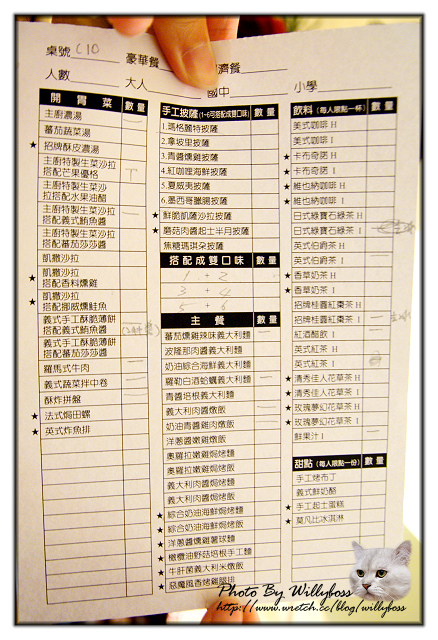 桌號 C10 豪華餐 濟餐
人數 大人 國中 小學
開胃菜 數量
主廚濃湯
蕃茄蔬菜湯
★ 招牌酥皮濃湯
主廚特製生菜沙拉
搭配芒果優格
主廚特製生菜沙
拉搭配水果油醋
主廚特製生菜沙拉
搭配義式鮪魚醬
主廚特製生菜沙拉
搭配蕃茄莎莎醬
凱撒沙拉
凱撒沙拉
★ 搭配香料燻雞
凱撒沙拉
★ 搭配挪威燻鮭魚
義式手工酥脆薄餅
搭配義式鮪魚醬
義式手工酥脆薄餅
搭配蕃茄莎莎醬
羅馬式牛肉
義式蔬菜拌中卷
酥炸拼盤
★ 法式焗田螺
★ 英式炸魚排
手工披薩 (1~6可搭配成雙口味) 數量
1.瑪格麗特披薩
2.拿坡里披薩
3.青醬燻雞披薩
4.紅咖哩海鮮披薩
5.夏威夷披薩
6.墨西哥臘腸披薩
★ 鮮脆凱薩沙拉披薩
★ 蘑菇肉醬起士半月披薩
焦糖瑪琪朵披薩
搭配成雙口味 數量
1 + 2
3 + 4
5 + 6
主餐 數量
蕃茄燻雞辣味義大利麵
波隆那肉醬義大利麵
奶油綜合海鮮義大利麵
羅勒白酒蛤蠣義大利麵
青醬培根義大利麵
義大利肉醬燉飯
奶油青醬雞肉燉飯
洋蔥醬嫩雞燉飯
奧羅拉嫩雞焗烤麵
奧羅拉嫩雞焗烤飯
義大利肉醬焗烤麵
義大利肉醬焗烤飯
★ 綜合奶油海鮮焗烤麵
★ 綜合奶油海鮮焗烤飯
★ 洋蔥醬燻雞薯球麵
★ 橄欖油野菇培根手工麵
★ 牛肝菌義大利米燉飯
★ 惡魔風香烤雞腿排
飲料 (每人限點一杯) 數量
美式咖啡 H
美式咖啡 I
★ 卡布奇諾 H
★ 卡布奇諾 I
★ 維也納咖啡 H
★ 維也納咖啡 I
日式綠寶石綠茶 H
日式綠寶石綠茶 I
英式伯爵茶 H
英式伯爵茶 I
★ 香草奶茶 H
★ 香草奶茶 I
招牌桂圓紅棗茶 H
招牌桂圓紅棗茶 I
紅酒醋飲 I
英式紅茶 H
英式紅茶 I
★ 清秀佳人花草茶 H
★ 清秀佳人花草茶 I
★ 玫瑰夢幻花草茶 H
★ 玫瑰夢幻花草茶 I
鮮果汁 I
甜點 (每人限點一份) 數量
手工烤布丁
義式鮮奶酪
★ 手工起士蛋糕
★ 莫凡比冰淇淋
Photo By Willyboss
http://www.wretch.cc/blog/willyboss